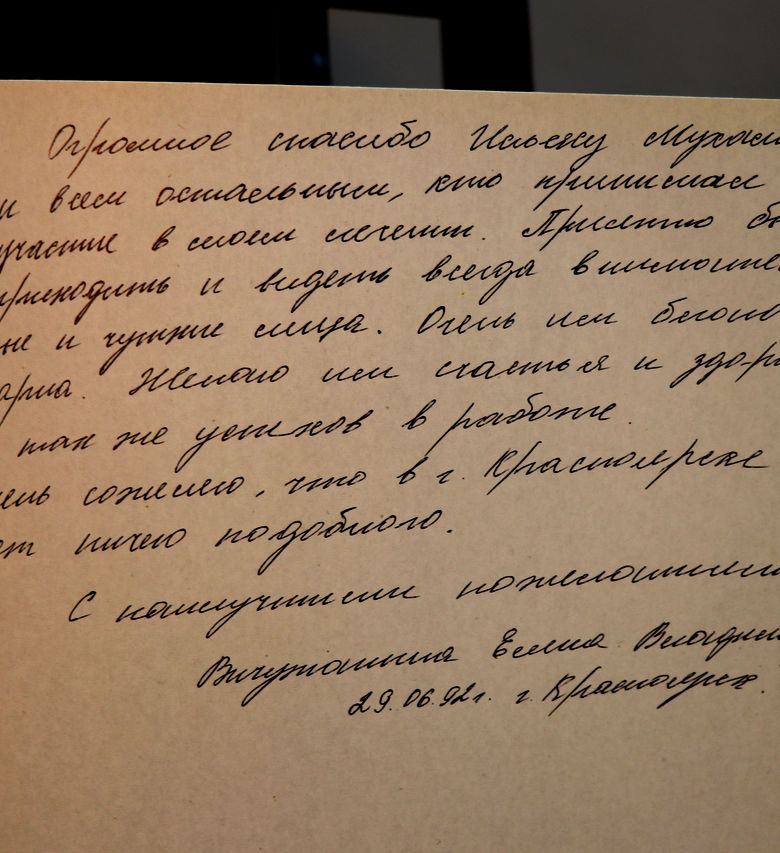 Огромное спасибо Ильясу Мухам
и всем остальным, кто принимал
участие в моем лечении. Приятно бы
приходить и видеть всегда внимател
ые и чуткие лица. Очень им благо
арна. Желаю им счастья и здор
так же успехов в работе.
ень сожалею, что в г. Красноярске
ет ничего подобного.
С наилучшими пожеланиями
Вичужанина Елена Владим
29.06.92г. г. Красноярск.